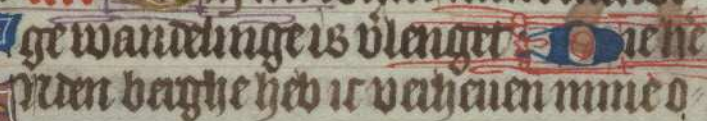 ge wandelinge is v̾lenget Die he
Nden berghe heb ic verheuen mine o